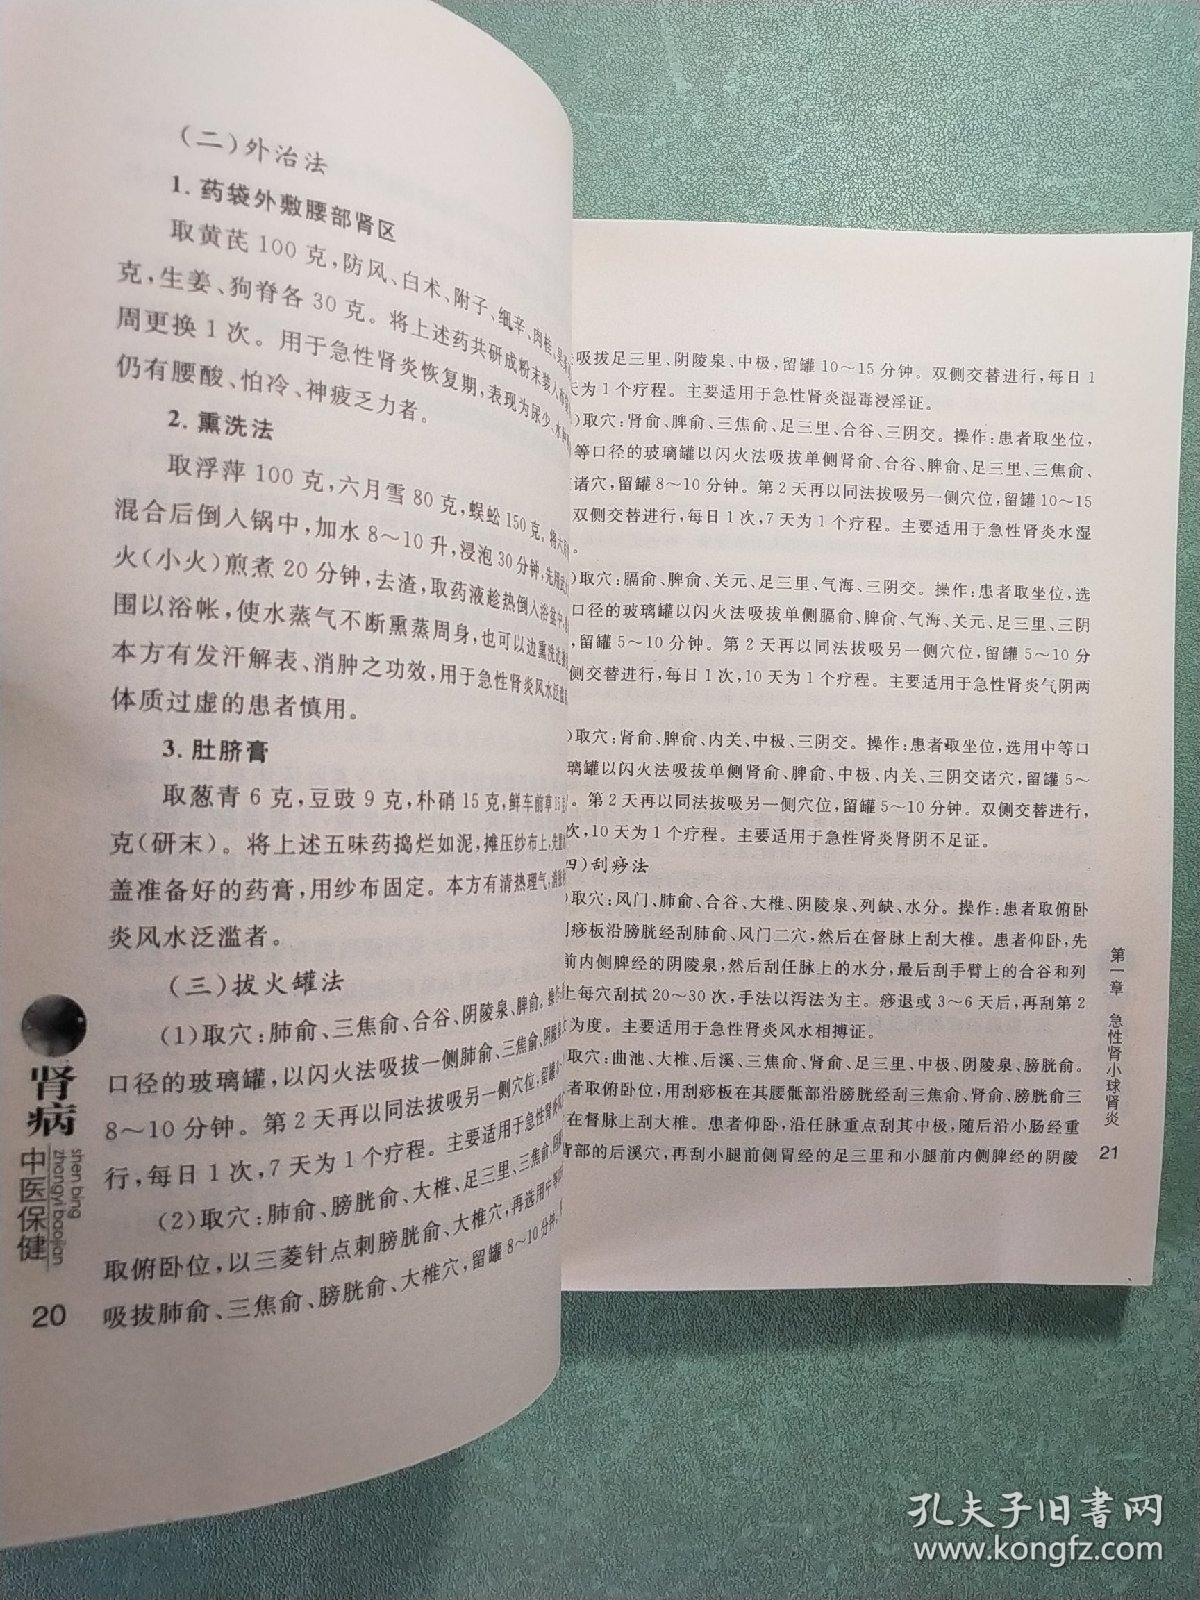 (二)外治法
1. 药袋外敷腰部肾区
取黄芪100克,防风、白术、附子、细辛、肉桂、
克,生姜、狗脊各30克。将上述药共研成粉末装入
周更换1次。用于急性肾炎恢复期,表现为尿少、水肿
仍有腰酸、怕冷、神疲乏力者。
2. 熏洗法
取浮萍100克,六月雪80克,蜈蚣150克。将
混合后倒入锅中,加水8~10升,浸泡30分钟,先用
火(小火)煎煮20分钟,去渣,取药液趁热倒入浴盆中,
围以浴帐,使水蒸气不断熏蒸周身,也可以边熏洗边
本方有发汗解表、消肿之功效,用于急性肾炎风水泛滥
体质过虚的患者慎用。
3. 肚脐膏
取葱青6克,豆豉9克,朴硝15克,鲜车前草15
克(研末)。将上述五味药捣烂如泥,摊压纱布上,先
盖准备好的药膏,用纱布固定。本方有清热理气,消
炎风水泛滥者。
(三)拔火罐法
(1)取穴:肺俞、三焦俞、合谷、阴陵泉、脾俞。操作
口径的玻璃罐,以闪火法吸拔一侧肺俞、三焦俞、阴陵泉
8~10分钟。第2天再以同法拔吸另一侧穴位,留罐
行,每日1次,7天为1个疗程。主要适用于急性肾炎
(2)取穴:肺俞、膀胱俞、大椎、足三里、三焦俞、阴
取俯卧位,以三菱针点刺膀胱俞、大椎穴,再选用中等
吸拔肺俞、三焦俞、膀胱俞、大椎穴,留罐8~10分钟,
肾病
shen bing
zhongyi baojian
中医保健
20
吸拔足三里、阴陵泉、中极,留罐10~15分钟。双侧交替进行,每日1
天为1个疗程。主要适用于急性肾炎湿毒浸淫证。
)取穴:肾俞、脾俞、三焦俞、足三里、合谷、三阴交。操作:患者取坐位,
等口径的玻璃罐以闪火法吸拔单侧肾俞、合谷、脾俞、足三里、三焦俞、
诸穴,留罐8~10分钟。第2天再以同法拔吸另一侧穴位,留罐10~15
双侧交替进行,每日1次,7天为1个疗程。主要适用于急性肾炎水湿
)取穴:膈俞、脾俞、关元、足三里、气海、三阴交。操作:患者取坐位,选
口径的玻璃罐以闪火法吸拔单侧膈俞、脾俞、气海、关元、足三里、三阴
,留罐5~10分钟。第2天再以同法拔吸另一侧穴位,留罐5~10分
侧交替进行,每日1次,10天为1个疗程。主要适用于急性肾炎气阴两
)取穴:肾俞、脾俞、内关、中极、三阴交。操作:患者取坐位,选用中等口
璃罐以闪火法吸拔单侧肾俞、脾俞、中极、内关、三阴交诸穴,留罐5~
。第2天再以同法拔吸另一侧穴位,留罐5~10分钟。双侧交替进行,
次,10天为1个疗程。主要适用于急性肾炎肾阴不足证。
四)刮痧法
)取穴:风门、肺俞、合谷、大椎、阴陵泉、列缺、水分。操作:患者取俯卧
刮痧板沿膀胱经刮肺俞、风门二穴,然后在督脉上刮大椎。患者仰卧,先
前内侧脾经的阴陵泉,然后刮任脉上的水分,最后刮手臂上的合谷和列
上每穴刮拭20~30次,手法以泻法为主。痧退或3~6天后,再刮第2
为度。主要适用于急性肾炎风水相搏证。
取穴:曲池、大椎、后溪、三焦俞、肾俞、足三里、中极、阴陵泉、膀胱俞。
者取俯卧位,用刮痧板在其腰骶部沿膀胱经刮三焦俞、肾俞、膀胱俞三
在督脉上刮大椎。患者仰卧,沿任脉重点刮其中极,随后沿小肠经重
背部的后溪穴,再刮小腿前侧胃经的足三里和小腿前内侧脾经的阴陵
第一章 急性肾小球肾炎
21
孔夫子旧书网
www.kongfz.com